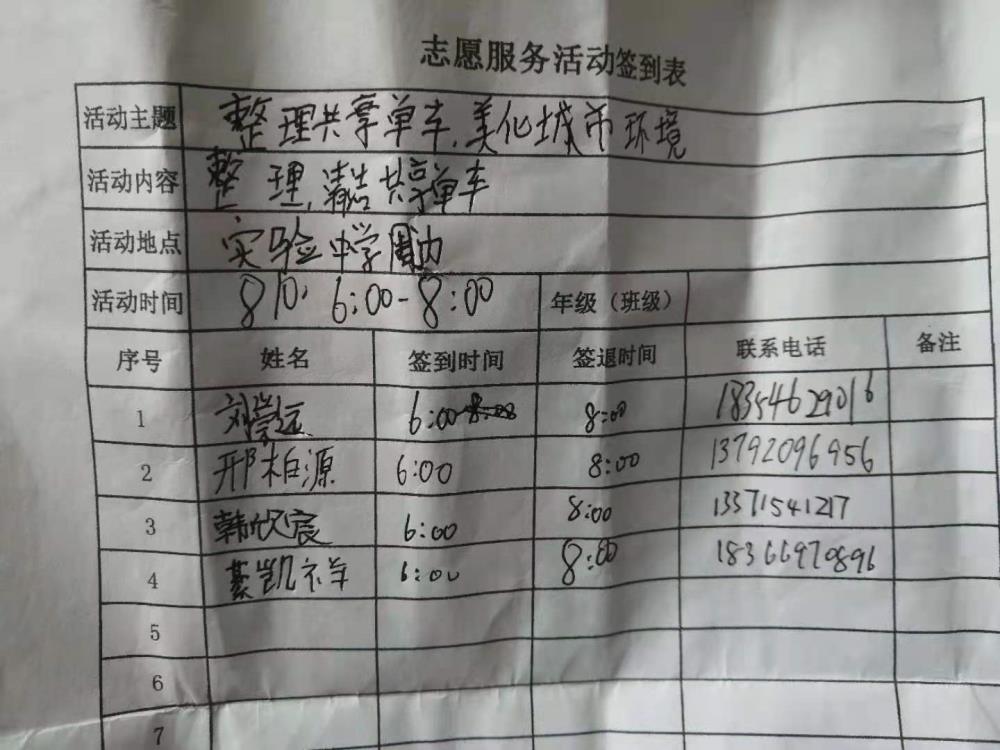 志愿服务活动签到表
活动主题 整理共享单车,美化城市环境
活动内容 整理, 共享单车
活动地点 实验中学周边
活动时间 8.10. 6:00-8:00 年级（班级）
序号 姓名 签到时间 签退时间 联系电话 备注
1 刘崇远 6:00 8:00 18354629016
2 邢柏源 6:00 8:00 13792096956
3 韩欣宸 6:00 8:00 13371541217
4 綦凯祥 6:00 8:00 18366970896
5
6
7